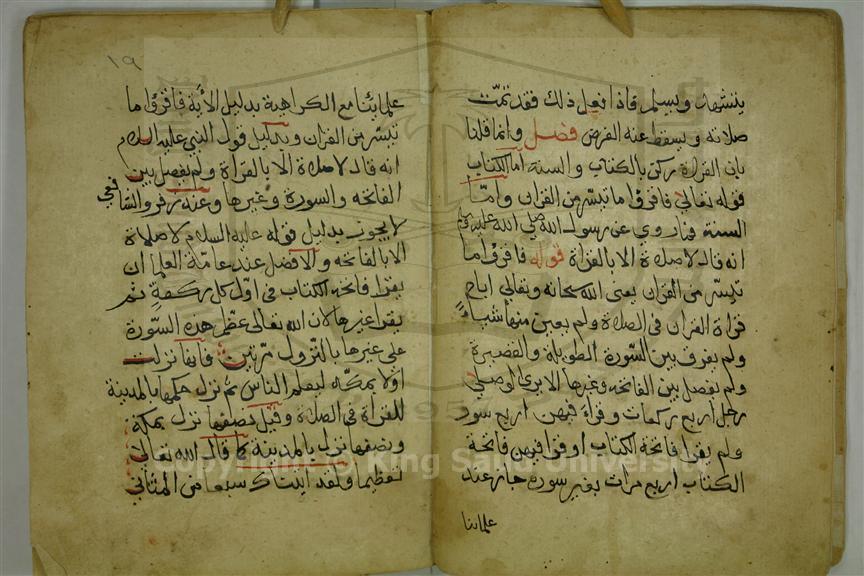 يتشهد ويسلم فاذا فعل ذلك فقد تمت
صلاته ويسقط عنه الفرض فصل وانما قلنا
بان القراة ركن بالكتاب والسنة اما الكتاب
قوله تعالى فاقرؤا ما تيسر من القران واما
السنة فما روي عن رسول الله صلى الله عليه وسلم
انه قال لا صلاة الا بالقراة قوله فاقرؤا ما
تيسر من القران يعنى الله سبحانه وتعالى اباح
قراة القران فى الصلاة ولم يعين منها شياء
ولم يفرق بين السورة الطويلة والقصيرة
ولم يفصل بين الفاتحه وغيرها الا يرى لو صلى
رجل اربع ركعات وقراء فيهن اربع سور
ولم يقرا فاتحة الكتاب او قرا فيهن فاتحة
الكتاب اربع مرات بغير سورة جاز عند
علمائنا
١٩
علمائنا مع الكراهية بدليل الأية فاقرؤا ما
تيسر من القران وبدليل قول النبي عليه السلام
انه قال لا صلاة الا بالقراة ولم يفصل بين
الفاتحه والسورة وغيرها وعند زفر والشافعي
لا يجوز بدليل قوله عليه السلام لا صلاة
الا بالفاتحه والافضل عند عامة العلما ان
يقرا فاتحة الكتاب فى اول كل ركعة ثم
يقرا غيرها لان الله تعالى عظم هذه السورة
على غيرها بالنزول مرتين فانها نزلت
اولا بمكه ليعلم الناس ثم نزل حكمها بالمدينة
للقراة فى الصلاة وقيل نصفها نزل بمكة
ونصفها نزل بالمدينة كما قال الله تعالى
تعظيما ولقد اتيناك سبعا من المثاني
Copyright © King Saud University
1957